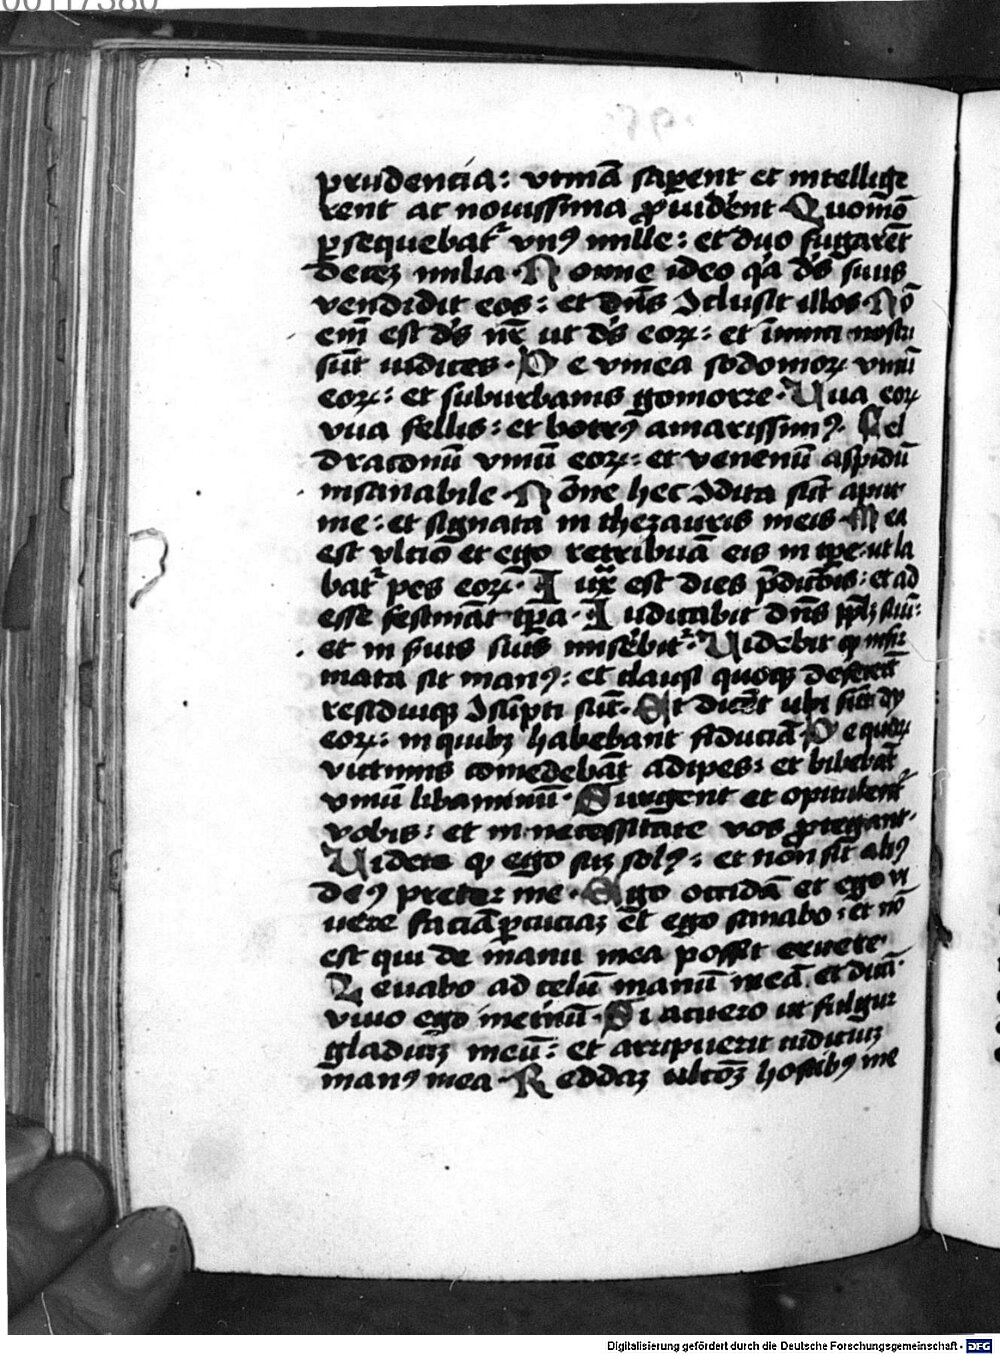 00117380
prudencia: vtinā saperent et intellige
rent ac nouissima ꝓuidērent Quomō
ꝑsequebat᷑ vnꝰ mille: et duo fugarēt
decez milia · Nonne ideo qͥa dſ suus
vendidit eos: et dn̄s ɔclusit illos · Nō
em̄ est dſ nr̄ ut dſ eoꝝ: et inimici nostri
sūt iudices · De vinea sodomoꝝ vinū
eoꝝ: et suburbanis gomorre · Uua eoꝝ
vua fellis: et botrꝰ amarissimꝰ · Fel
draconū vinū eoꝝ: et venenū aspidū
insanabile · Nōne hec ɔdita sūt aput
me: et signata in thezauris meis · Mea
est vltio et ego retribuā eis in tꝑe: ut la
bat᷑ pes eoꝝ · Iuxͣ est dies ꝑdicōis: et ad
esse festināt tꝑa · Iudicabit dn̄s ppl̄ʒ suū:
et in ẜuis suis misẽbit᷑ · Uidebit ꝙ infir
mata sit manꝰ: et clausi quoqꝫ defecerūt
residuiqꝫ ɔsūpti sūt · Et dicēt ubi sūt dij
eoꝝ: in quibꝫ habebant fiduciā De quoꝝ
victimis comedebāt adipes: et bibebāt
vinū libaminū · Surgent et opitulent᷑
vobis: et in necessitate vos ꝓtegant ·
Uidete ꝙ ego siꝫ solꝰ: et non sit aliꝰ
deꝰ preter me · Ego occidā et ego vi
uere faciā ꝑcuciaꝫ et ego sanabo: et nō
est qui de manu mea possit eruere ·
Leuabo ad celū manū meā et dicā
viuo ego in et̄nū · Si acuero ut fulgur
gladiuꝫ meū: et arripuerit iudiciuꝫ
manꝰ mea · Reddaꝫ vltoꝫ hostibꝰ me
Digitalisierung gefördert durch die Deutsche Forschungsgemeinschaft - DFG